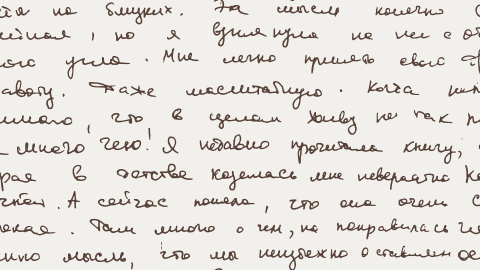 на близких. Эта мысль конечно
, но я взглянула на нее с от
ного угла. Мне легко принять свою
аботу. Даже масштабную. Когда
много, что в целом живу не так п
много чего! Я недавно прочитала книгу,
рая в детстве казалась мне невероятно ка
. А сейчас поняла, что она очень с
. Там много о чем, но понравилась
мысль, что мы неизбежно оставляем ос